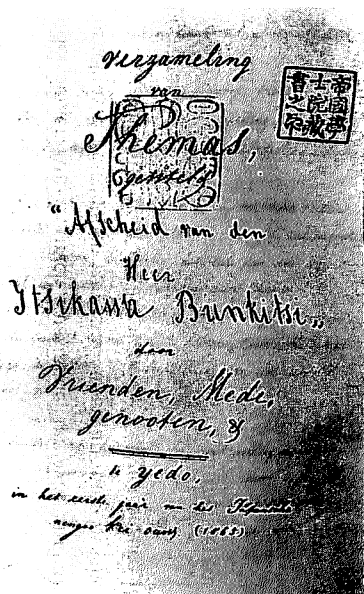 Verzameling
van
Themas,
"Afscheid van den
Heer
Itsikawa Bunkitsi„
door
Vrienden, Mede,
genooten, &
te Yedo,
in het eerste jaar van
nengoo Kei-ou (1865)
帝國學
士院藏
書之印